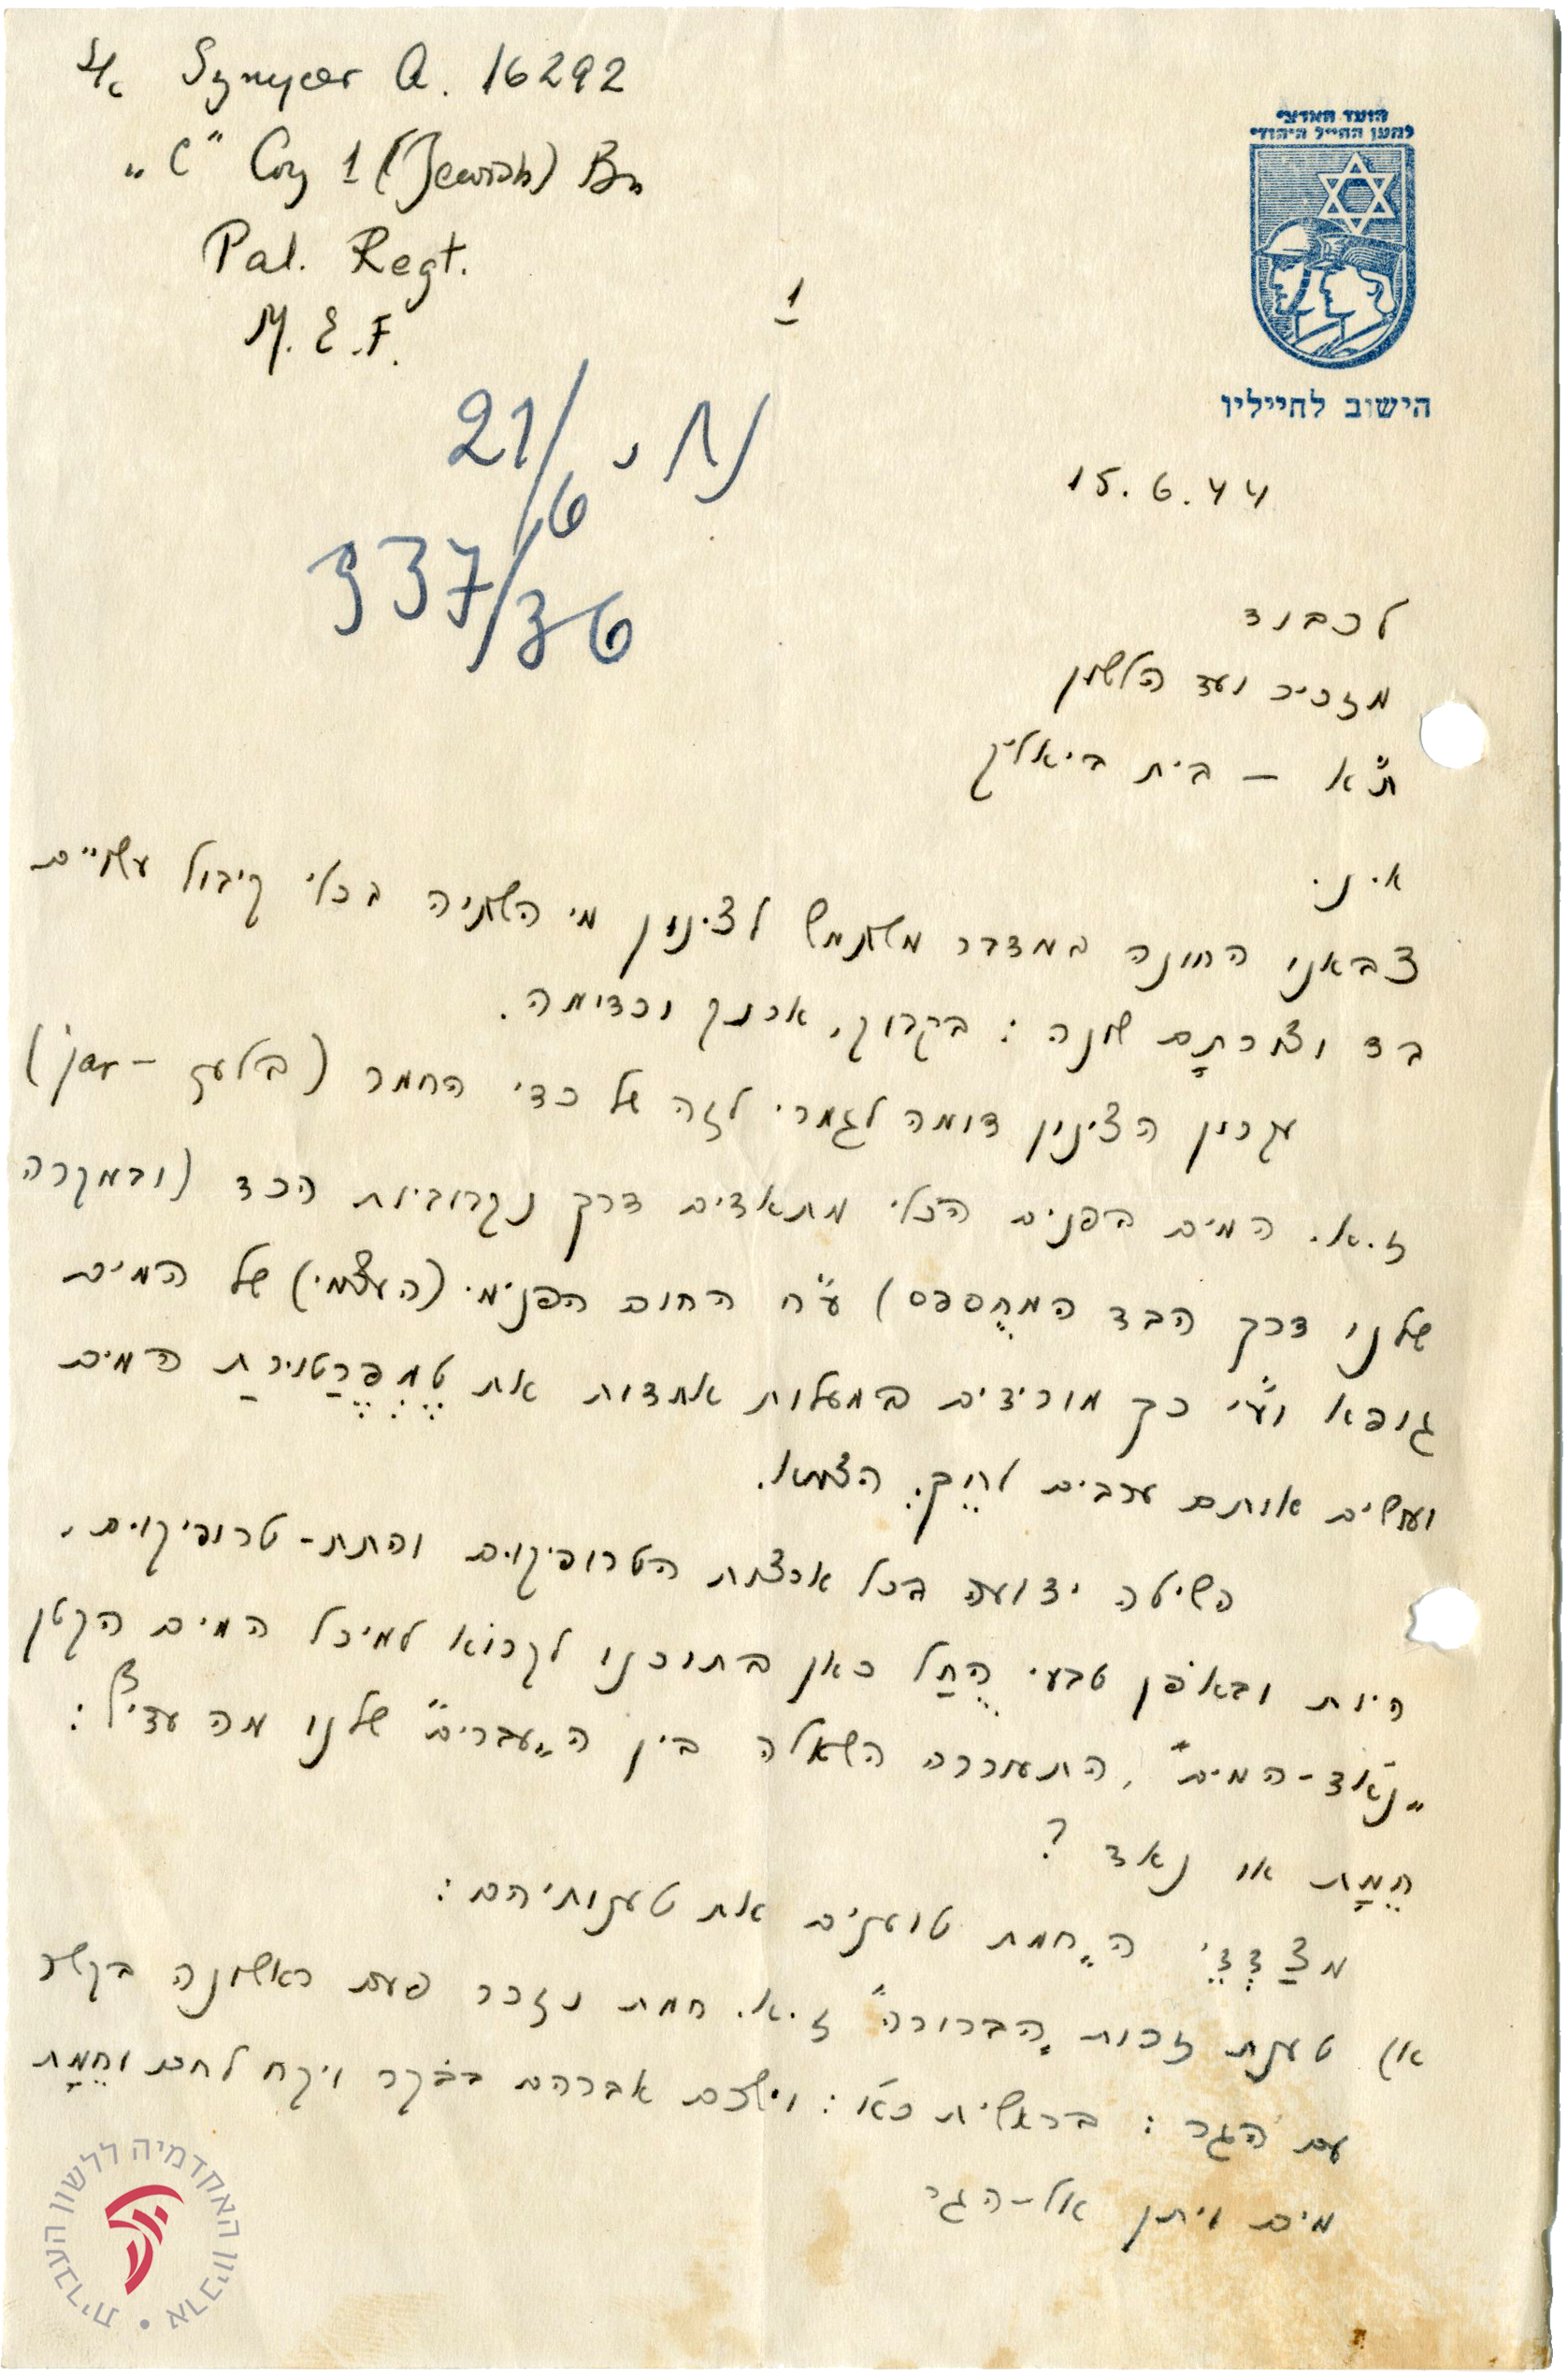 L/c Sznycer A. 16292
"C" Coy 1 (Jewish) Bn
Pal. Regt.
M. E. F.
1
הועד הארצי
למען החייל היהודי
הישוב לחייליו
21/6
937/36
15.6.44
לכבוד
מזכיר ועד הלשון
ת"א – בית ביאליק
א. נ.
צבאנו החונה במדבר משתמש לצינון מי השתיה בכלי קיבול עשויים
בד וצורתָם שונה: בקבוק, ארנק וכדומה.
עקרון הצינון דומה לגמרי לזה של כדי החמר (בלעז – jar)
ז.א. המים בפנים הכלי מתאדים דרך נקבוביות הכד (ובמקרה
שלנו דרך הבד המחֻספס) ע"ח החום הפנימי (העצמי) של המים
גופא וע"י כך מורידים במעלות אחדות את טֶמְפֶּרַטוּרַת המים
ועושים אותם ערבים לחֵךְ הצמא.
השיטה ידועה בכל ארצות הטרופיקוים והתת-טרופיקוים.
היות ובאופן טבעי הֻחַל כאן בתוכנו לקרוֹא למיכל המים הקטן
"נאד-המים", התעוררה השאלה בין ה"עברים" שלנו מה עדיף:
חֵמָת או נאד?
מצַדְּדֵי ה"חמת טוענים את טענותיהם:
א) טענת זכות "הבכורה" ז.א. חמת נזכר פעם ראשונה בקשר
עם הגר: בראשית כ"א: וישכם אברהם בבֹקר ויקח לחם וחֵמַת
מים ויתן אל-הגר
האקדמיה ללשון העברית • ארכיון